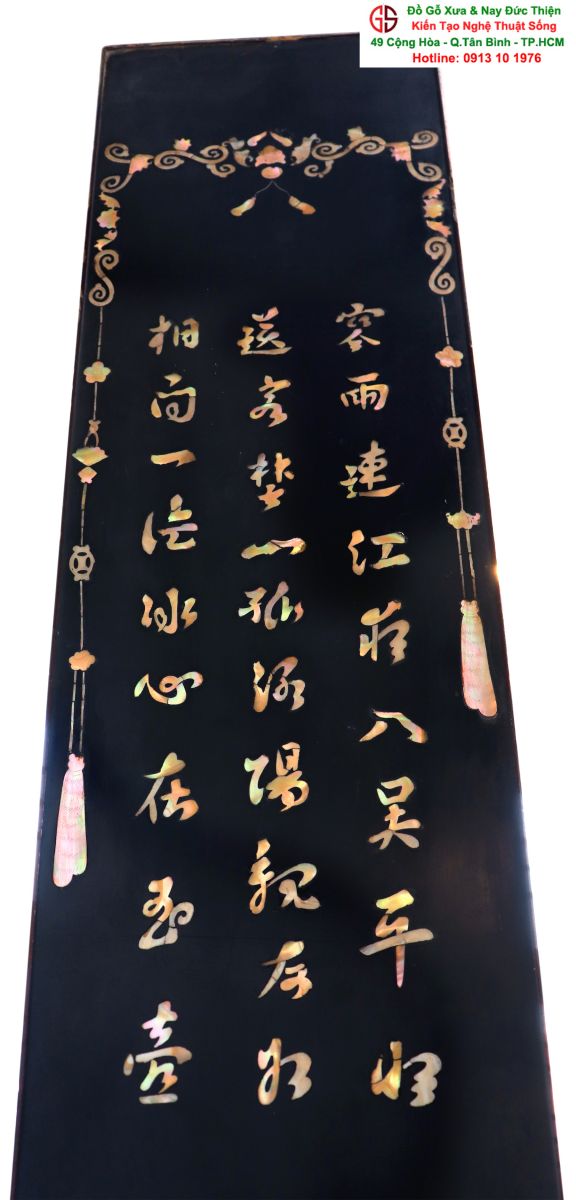 Đồ Gỗ Xưa & Nay Đức Thiện
Kiến Tạo Nghệ Thuật Sống
49 Cộng Hòa - Q.Tân Bình - TP.HCM
Hotline: 0913 10 1976
寒雨連江夜入吳平明
送客楚山孤洛陽親友如
相問一片冰心在玉壺